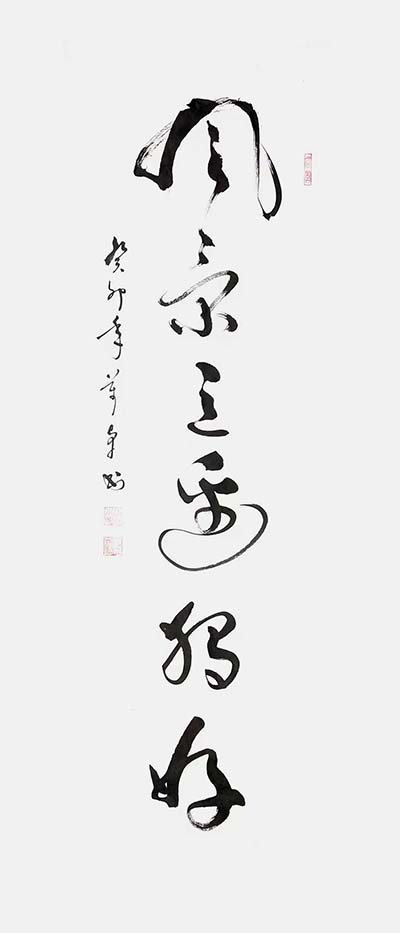 風景這邊獨好
癸卯年